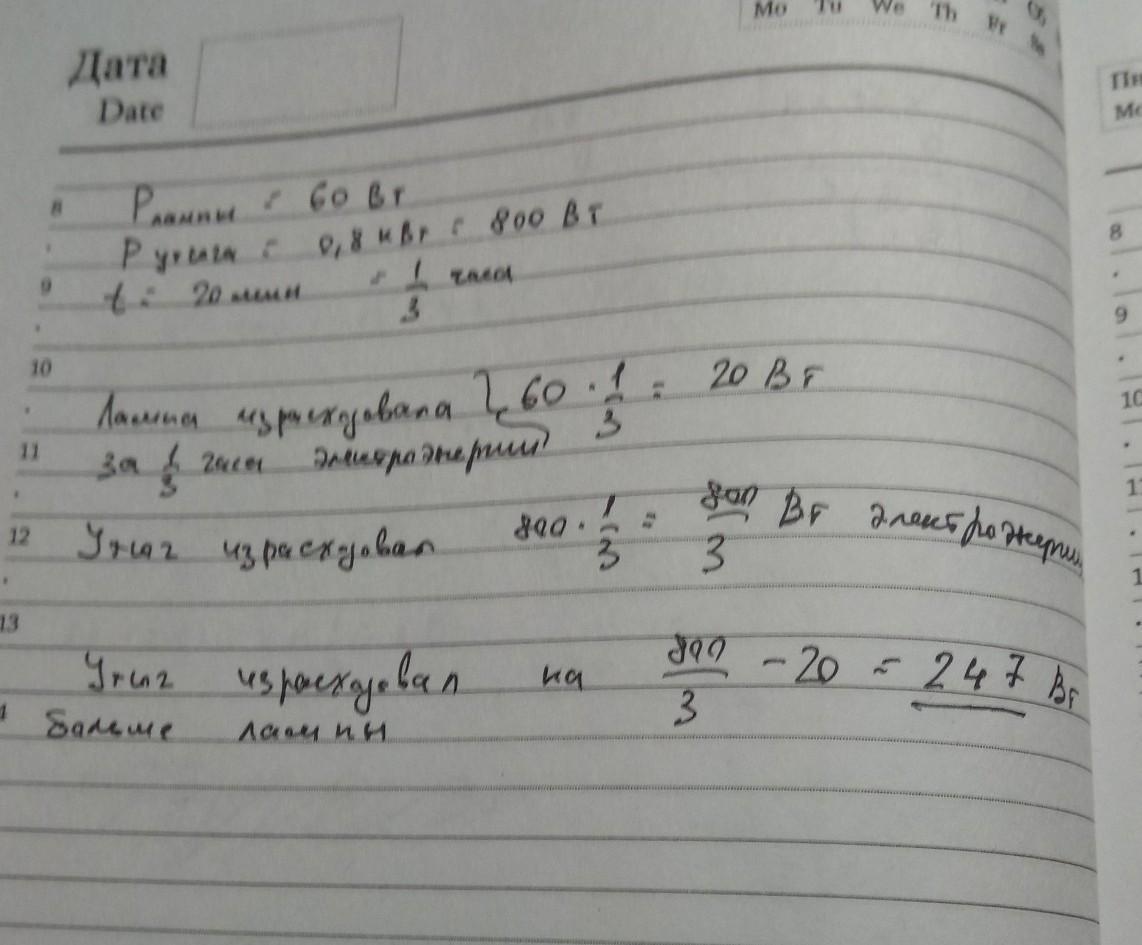 Mo Tu We Th Fr
Дата
Date
8 Pлампы = 60 Вт
P утюга = 0,8 кВт = 800 Вт
9 t = 20 мин = 1/3 часа
10
Лампа израсходовала 60 · 1/3 = 20 Вт
11 за 1/3 часа электроэнергии
12 Утюг израсходовал 800 · 1/3 = 800/3 Вт электроэнергии
13
Утюг израсходовал на 800/3 - 20 = 247 Вт
больше лампы
Пн
8
9
10